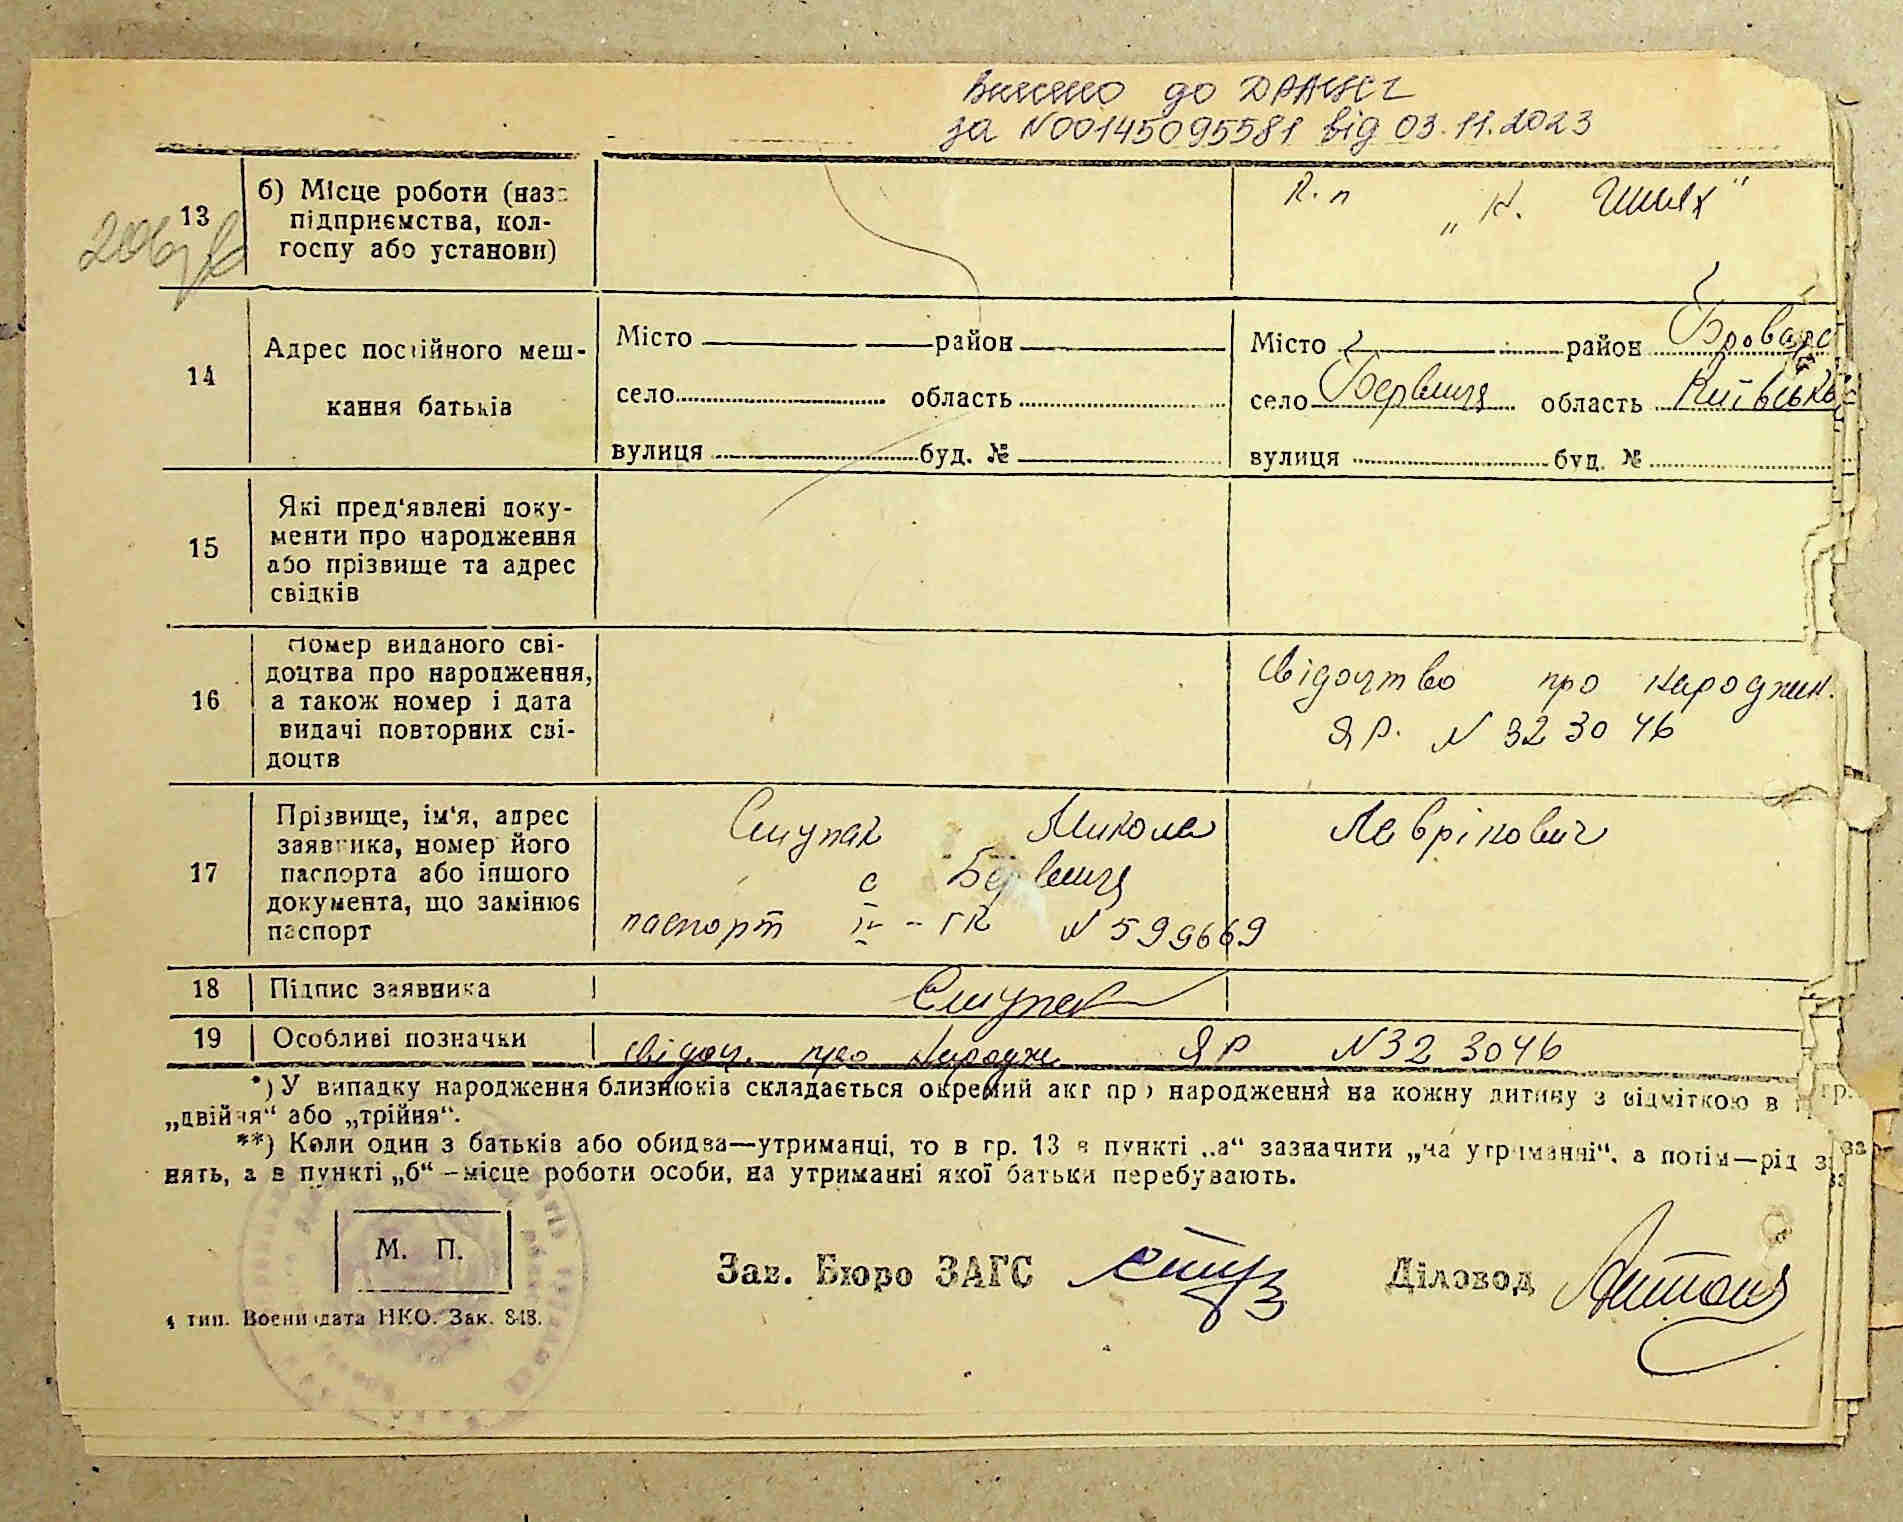 Внесено до ДРАЦСГ
за №00145095581 від 03.11.2023
13
б) Місце роботи (наз
підприємства, кол-
госпу або установи)
к. п „Н. Шлях“
14
Адрес постійного меш-
кання батьків
Місто район
село область
вулиця буд. №
Місто район Броварс
село Бервиця область Київськ
вулиця буд. №
15
Які пред'явлені доку-
менти про народження
або прізвище та адрес
свідків
16
Номер виданого сві-
доцтва про народження,
а також номер і дата
видачі повторних сві-
доцтв
Свідоцтво про народжен.
ЯР. N 323046
17
Прізвище, ім'я, адрес
заявника, номер його
паспорта або іншого
документа, що замінює
паспорт
Ступак Микола Лаврінович
с Бервиця
паспорт IV - ГК N 599669
18
Підпис заявника
Ступак
19
Особливі позначки
свідоц. про народж ЯР N 323046
*) У випадку народження близнюків складається окремий акт про народження на кожну дитину з відміткою в гр.
„двійня“ або „трійня“.
**) Коли один з батьків або обидва—утриманці, то в гр. 13 в пункті „а“ зазначити „на утриманні“, а потім—рід за
нять, а в пункті „б“ —місце роботи особи, на утриманні якої батьки перебувають.
М. П.
Зав. Бюро ЗАГС
Діловод
4 тип. Воениздата НКО. Зак. 848.